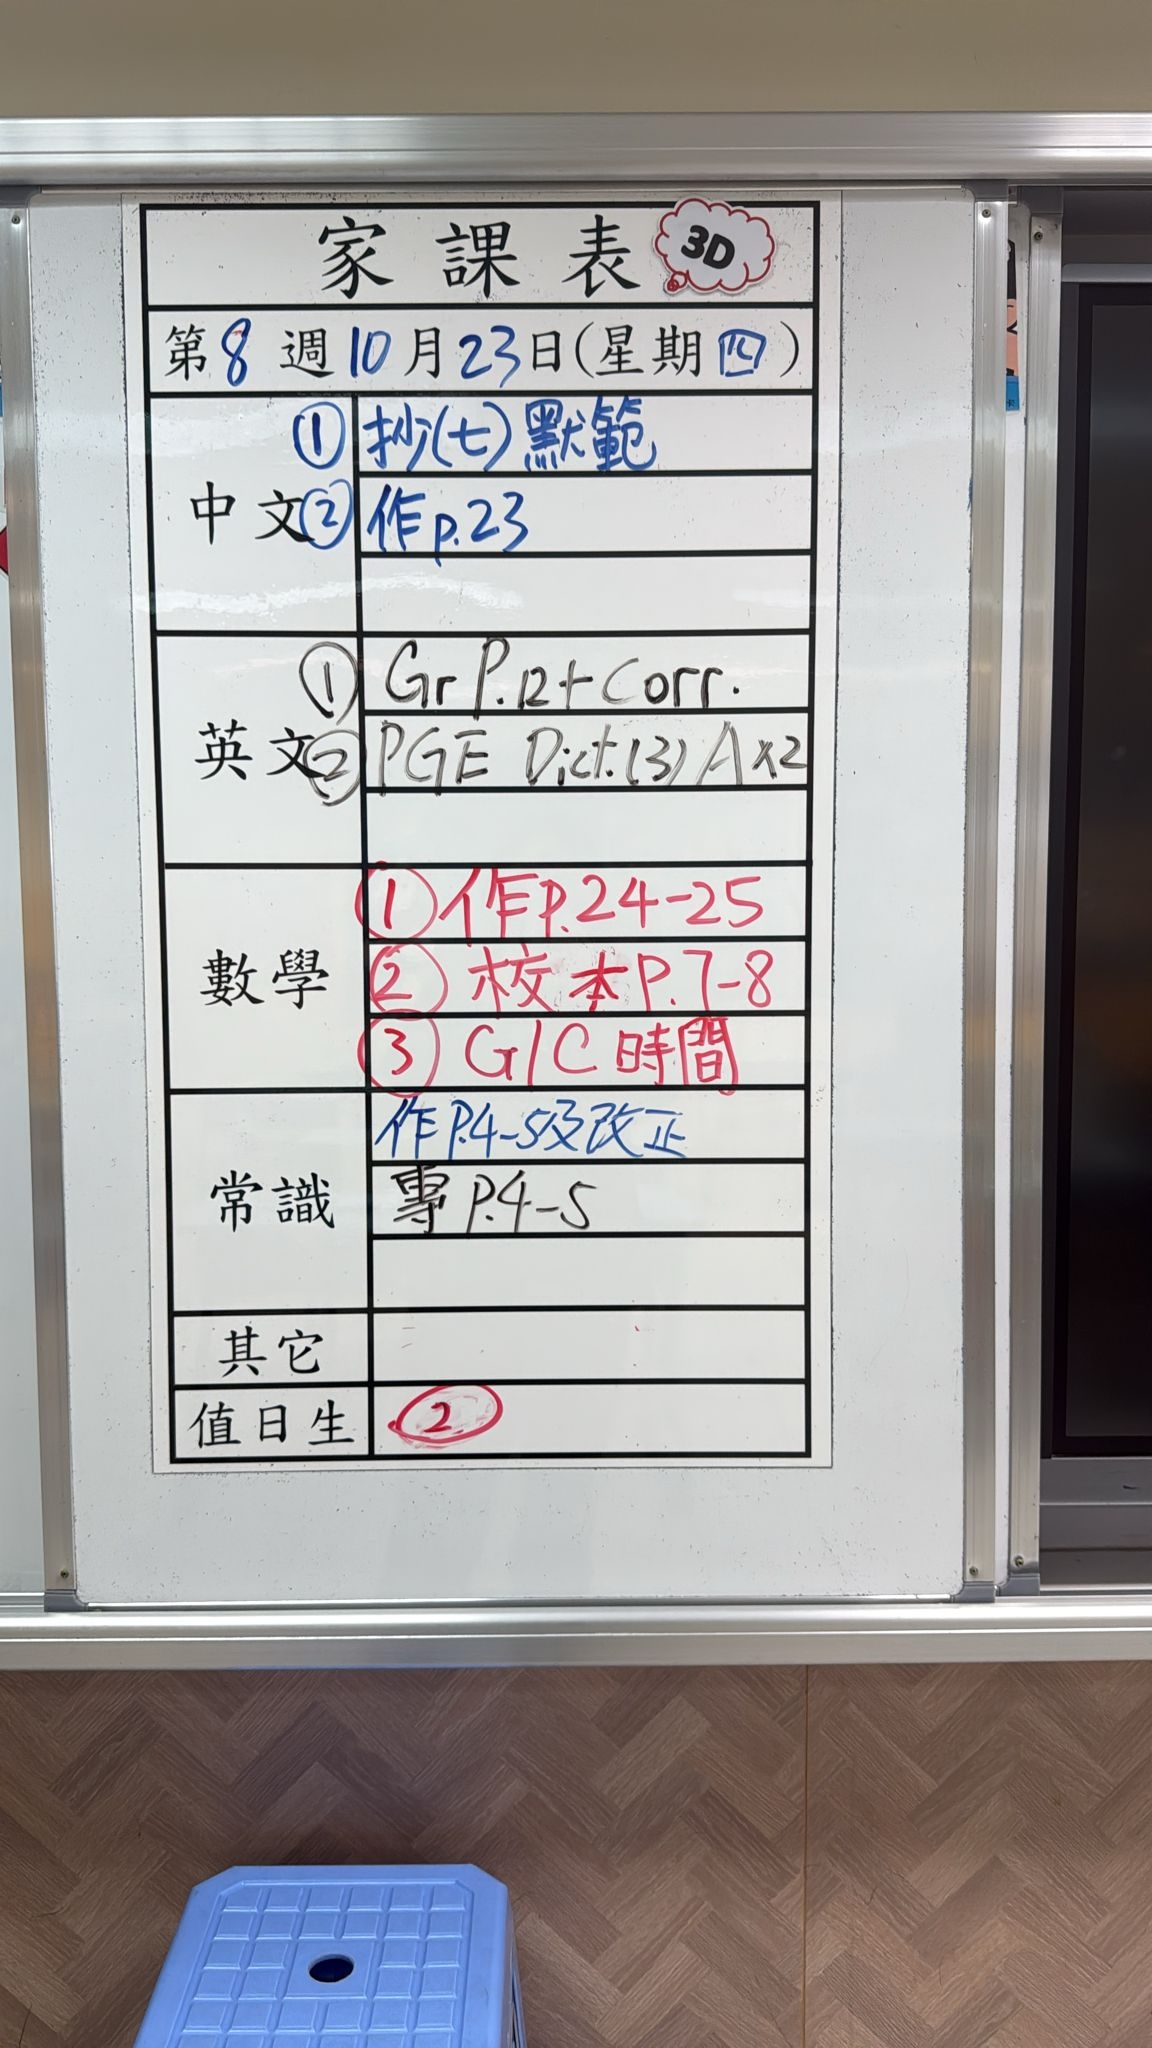 家課表 3D
第8週10月23日(星期四)
中文
① 抄(七)默範
② 作p.23
英文
① Gr P.12+Corr.
② PGE Dict.(3) A x2
數學
① 作P.24-25
② 校本P.7-8
③ G/C 時間
常識
作P.4-5及改正
專P.4-5
其它
值日生 2